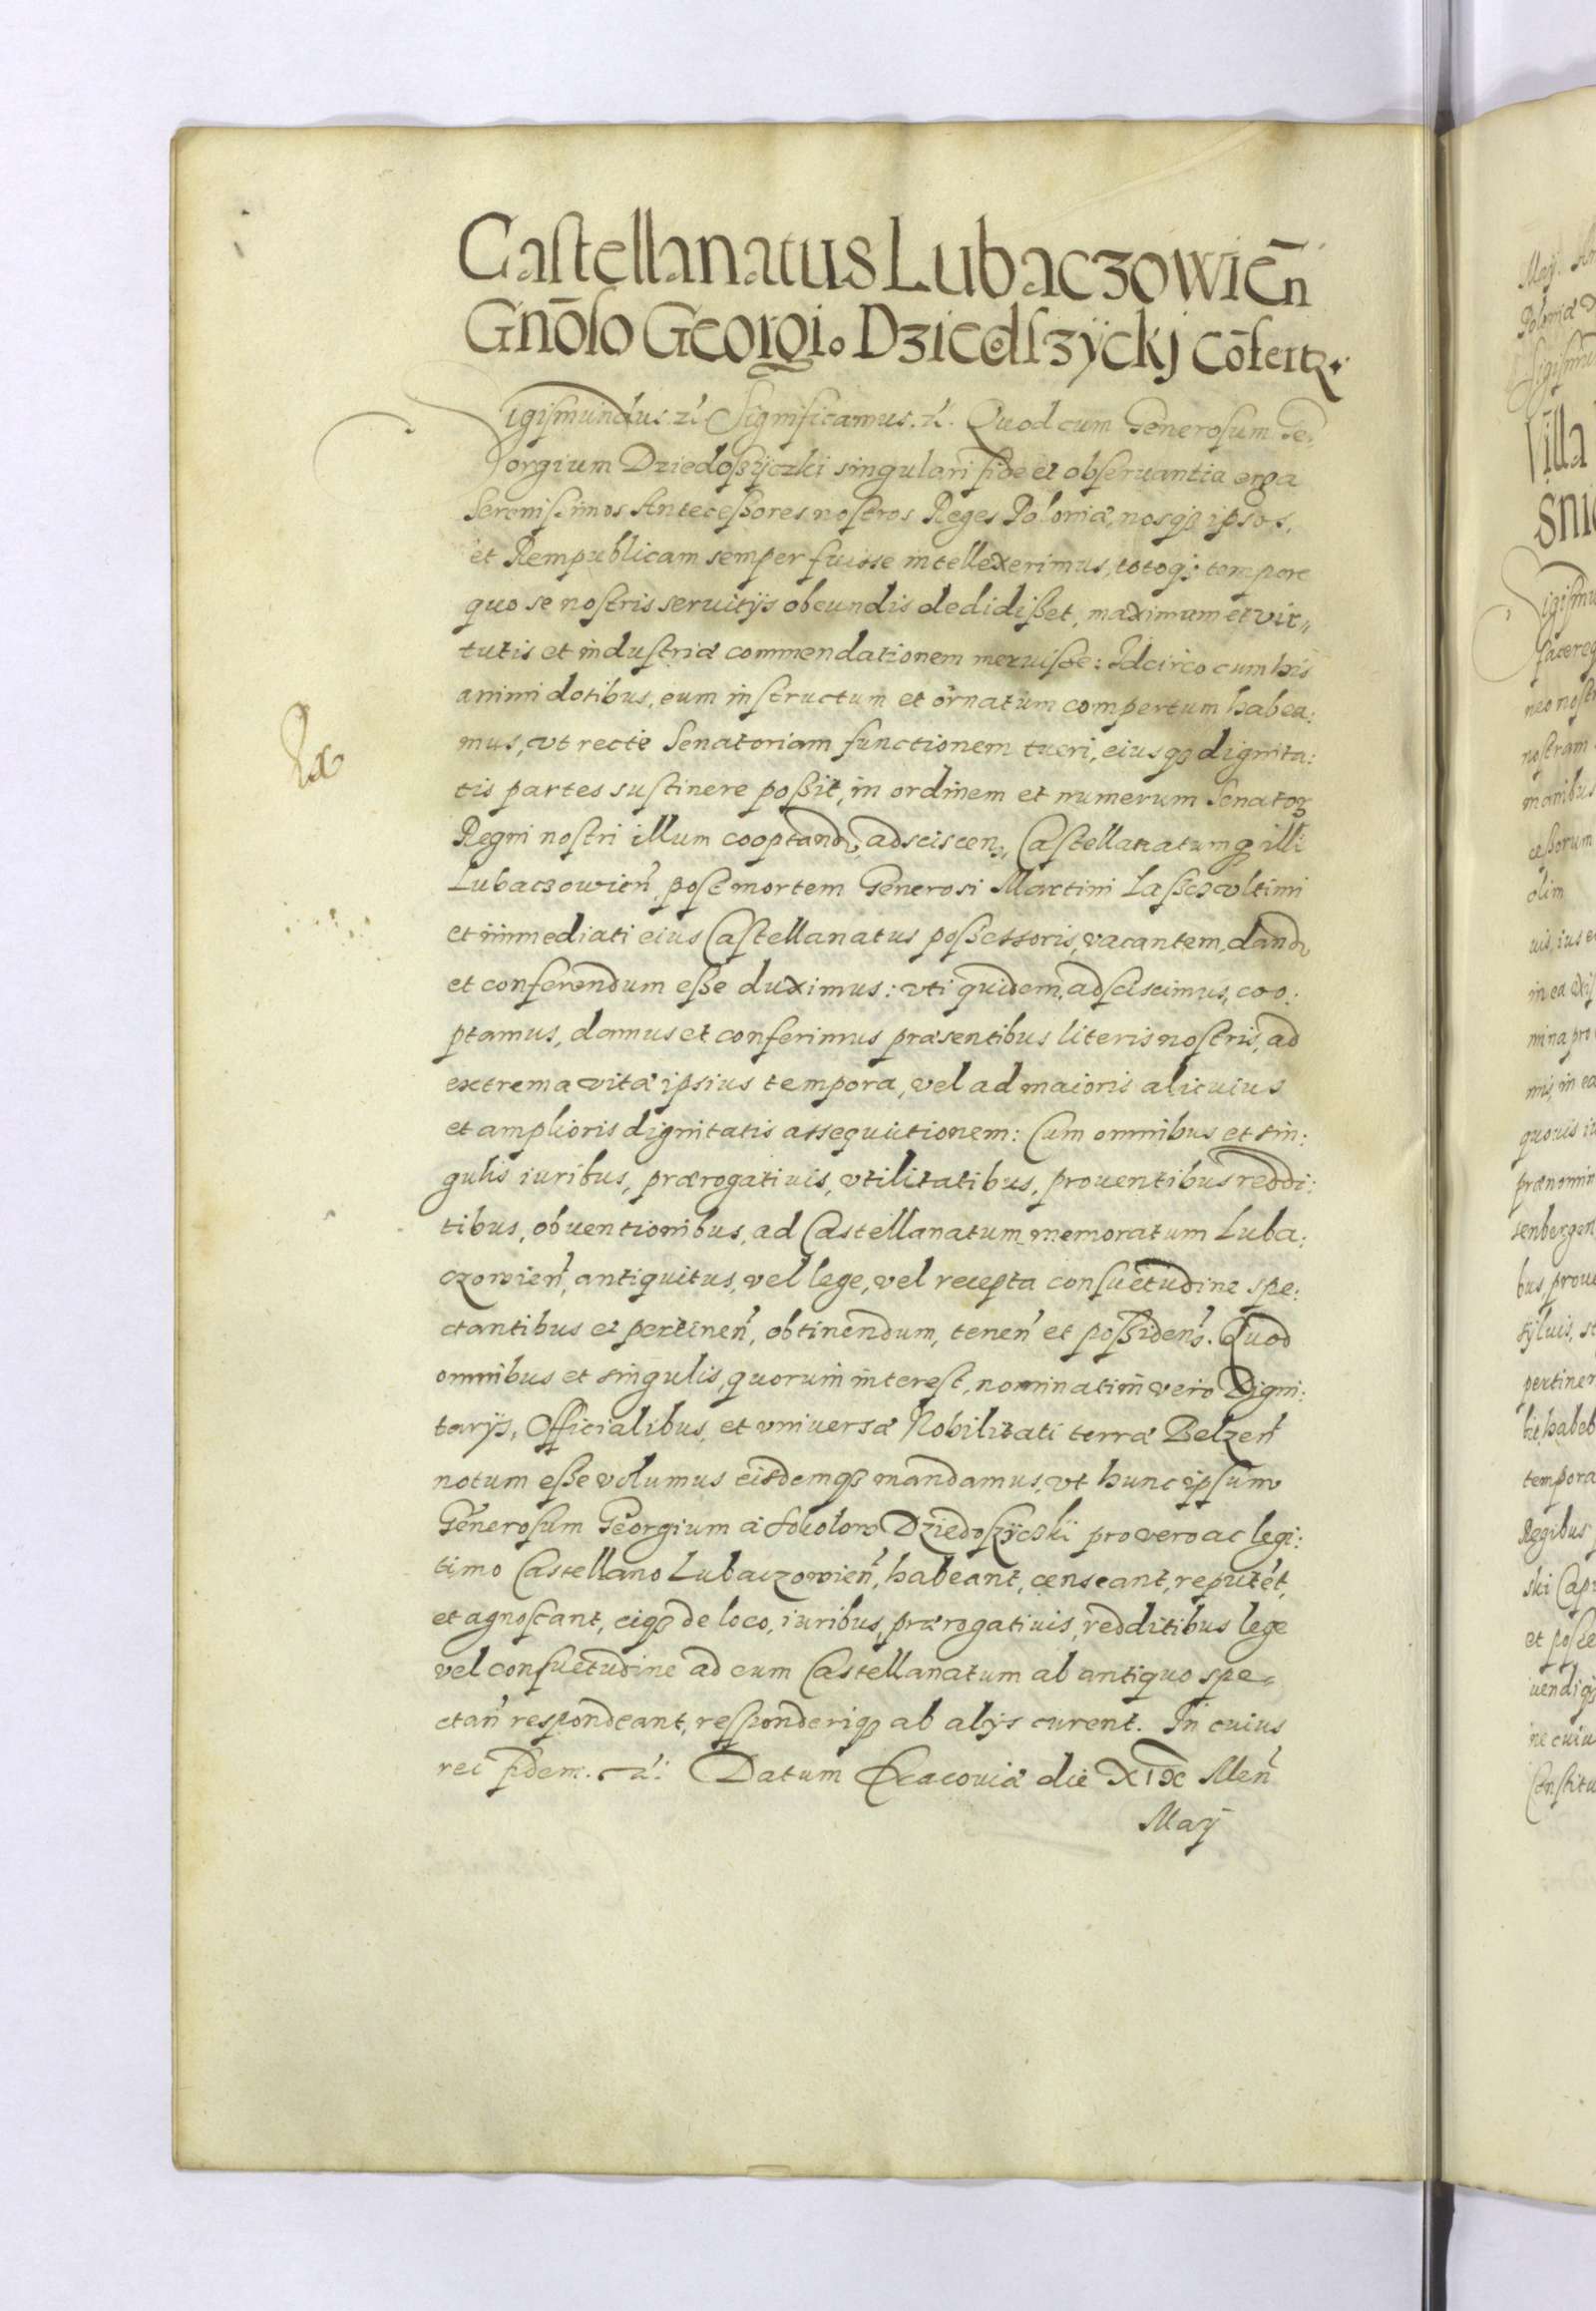 Castellanatus Lubaczowien̄
Gn̄oso Georgio Dziedoszÿckj cōfertꝛ
Sigismundus ꝛc̃ Significamus ꝛc̃. Quod cum Generosum Ge:
orgium Dziedoßÿczki singulari fide et obseruantia erga
Serenissimos Anteceßores nostros Reges Poloniæ, nosqꝫ ipsos,
et Rempublicam semper fuisse intellexerimus, totoqꝫ tempore
quo se nostris seruitijs obeundis dedidißet, maximam et vir„
tutis et industriæ commendationem meruisse: Idcirco cum his
animi dotibus, eum instructum et ornatum compertum habea:
mus, vt recte Senatoriam functionem tueri, eiusqꝫ dignita:
tis partes sustinere poßit, in ordinem et numerum Senatorꝝ
Regni nostri illum cooptand, adsciscen, Castellanatumqꝫ illi
Lubaczowien̄, post mortem Generosi Martini Laßcz vltimi
et immediati eius Castellanatus poßessoris, vacantem, dand
et conferendum eße duximus: vti quidem, adsciscimus, coo:
ptamus, damus et conferimus præsentibus literis nostris, ad
extrema vitæ ipsius tempora, vel ad maioris alicuius
et amplioris dignitatis assequutionem: Cum omnibus et sin:
gulis iuribus, prærogatiuis, vtilitatibus, prouentibus reddi:
tibus, obuentionibus, ad Castellanatum memoratum Luba:
czowien̄, antiquitus, vel lege, vel recepta consuetudine spe:
ctantibus et pertinen̄, obtinendum, tenen̄ et poßiden̄. Quod
omnibus et singulis, quorum interest, nominatim vero Digni:
tarijs, Officialibus, et vniuersæ Nobilitati terræ Belzen̄
notum eße volumus eisdemqꝫ mandamus, vt hunc ipsum
Generosum Georgium a Sokolow Dziedoszÿcski pro vero ac legi:
timo Castellano Lubaczowien̄, habeant, censeant, reputēt,
et agnoscant, eiqꝫ de loco, iuribus, prærogatiuis, redditibus lege
vel consuetudine ad eum Castellanatum ab antiquo spe„
ctan̄ respondeant, responderiqꝫ ab alijs curent. In cuius
rei fidem. ꝛc̃: Datum Cracouiæ die XIX Men̄
Maij